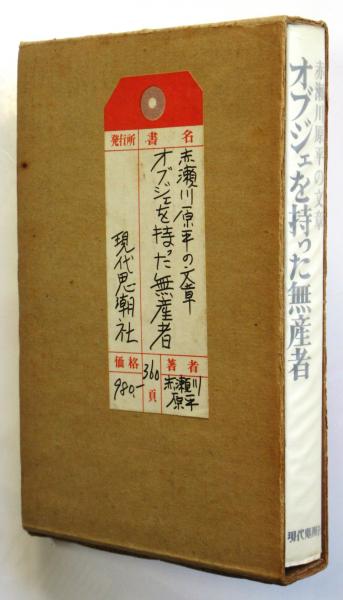 書名
赤瀬川原平の文章
オブジェを持った無産者
発行所
現代思潮社
著者
赤瀬川
原平
360頁
価格
980.-
赤瀬川原平の文章
オブジェを持った無産者
現代思潮社